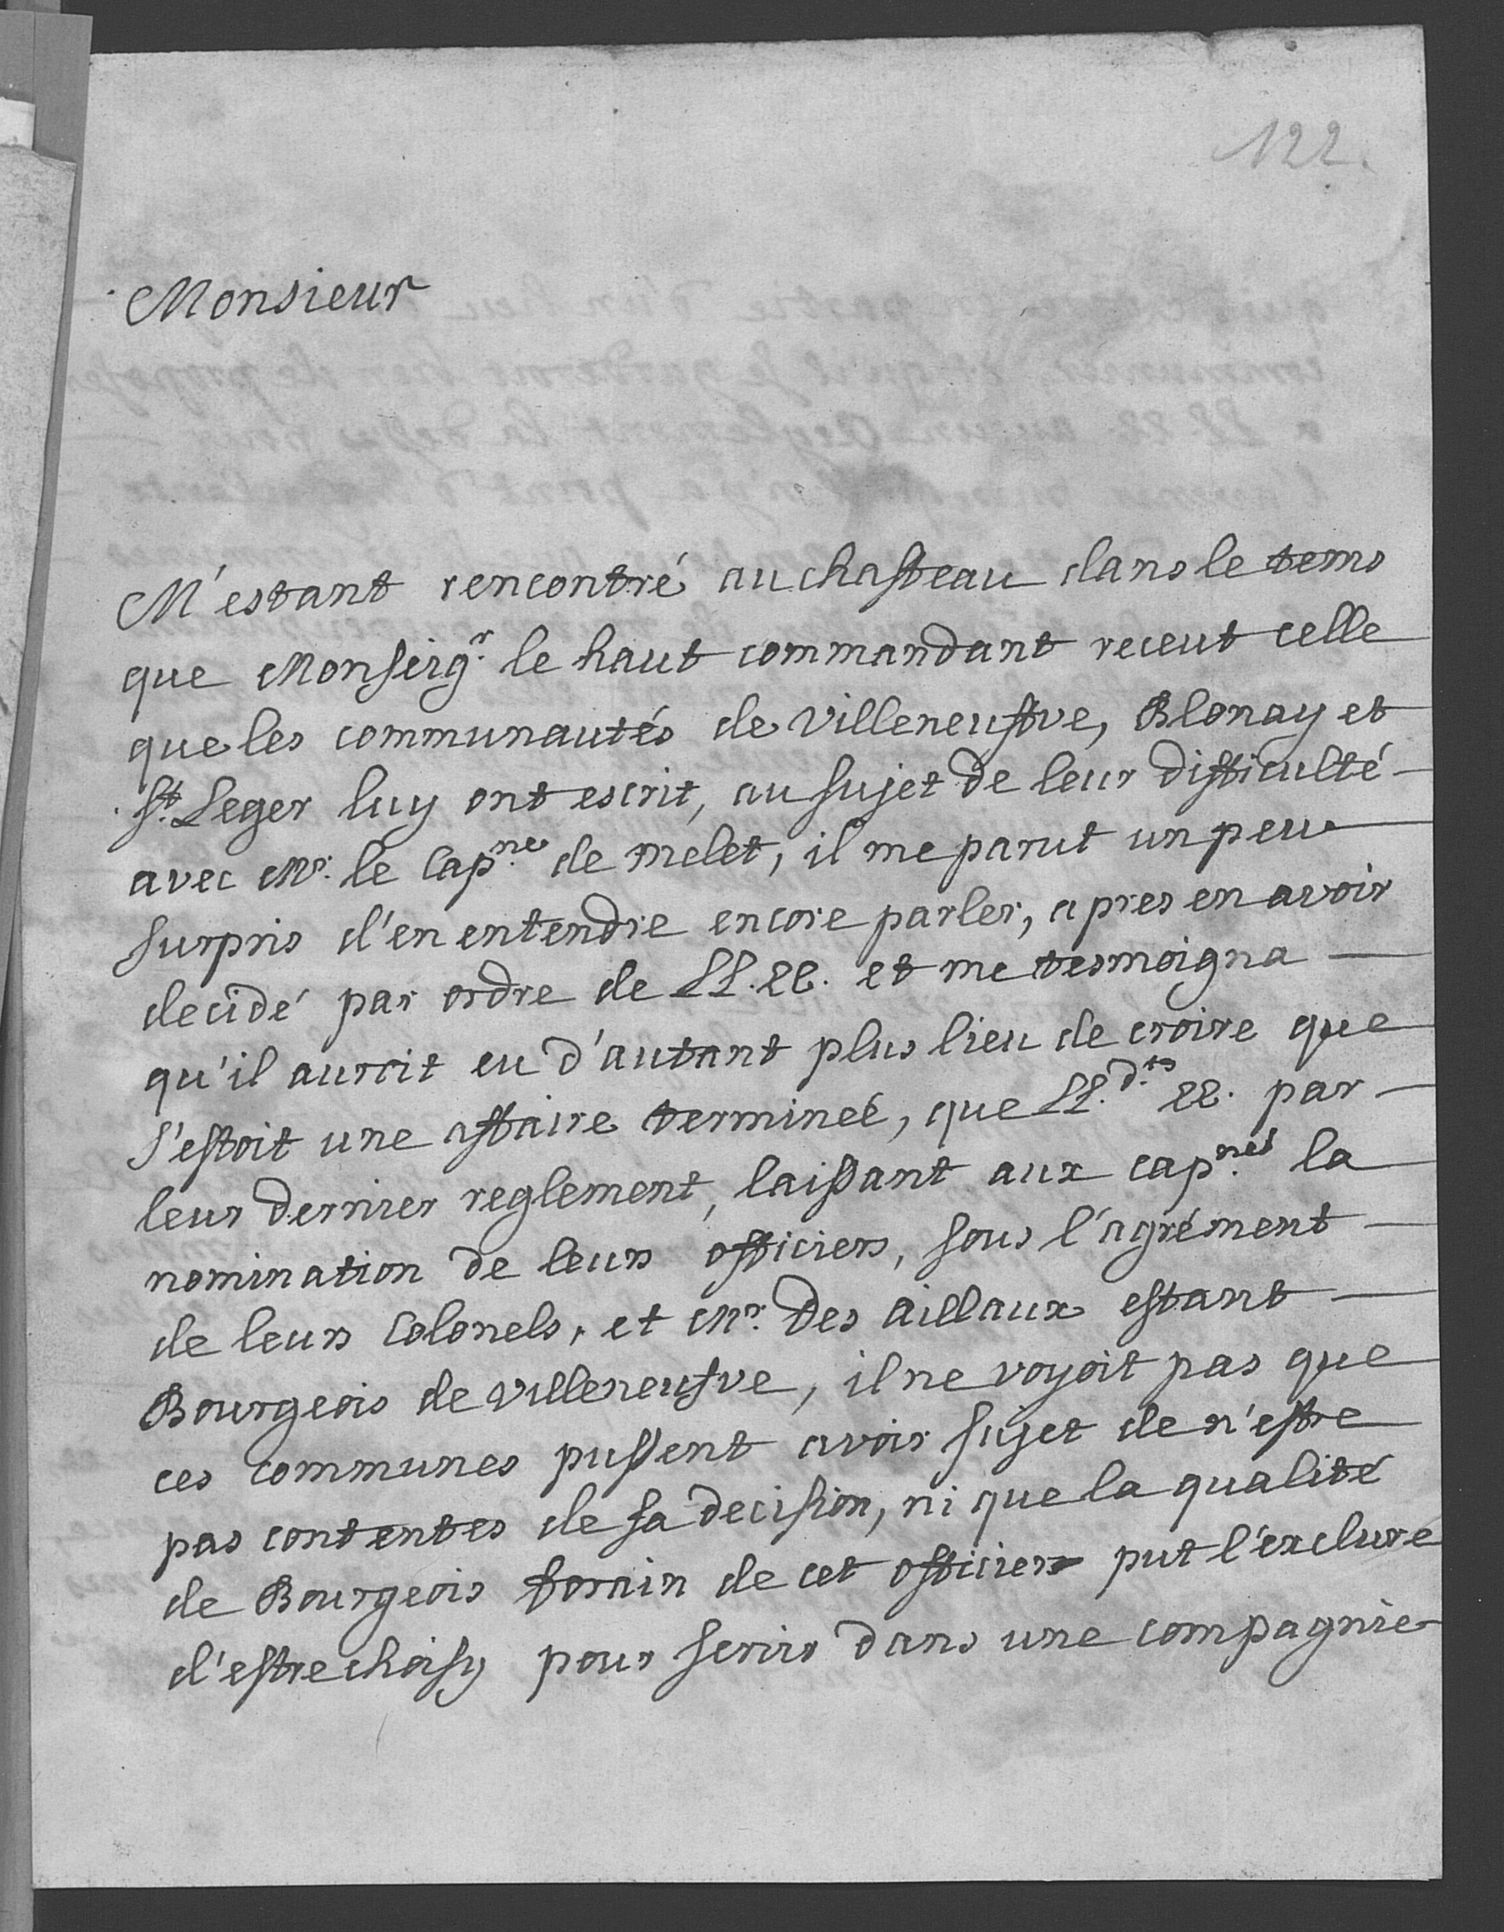 122.
Monsieur
M'estant rencontré au chasteau dans le tems
que Monseig.r le haut commandant receut celle
que les communautés de Villeneufve, Blonay et
St. Leger luy ont escrit, au sujet de leur difficulté
avec Mr. le Cap.ne de Melet, il me parut un peu
surpris d'en entendre encore parler, apres en avoir
decidé par ordre de LL.EE. et me tesmoigna
qu'il auroit eu d'autant plus lieu de croire que
s'estoit une affaire terminée, que LL.d.tes EE. par
leur dernier reglement, laissant aux cap.nes la
nomination de leurs officiers, sous l'agrément
de leurs Colonels, et Mr. Des Aillaux estant
Bourgeois de Villeneufve, il ne voyoit pas que
ces communes pussent avoir sujet de n'estre
pas contentes de sa decision, ni que la qualité
de Bourgeois forain de cet officier put l'exclure
d'estre choisy pour servir dans une compagnie